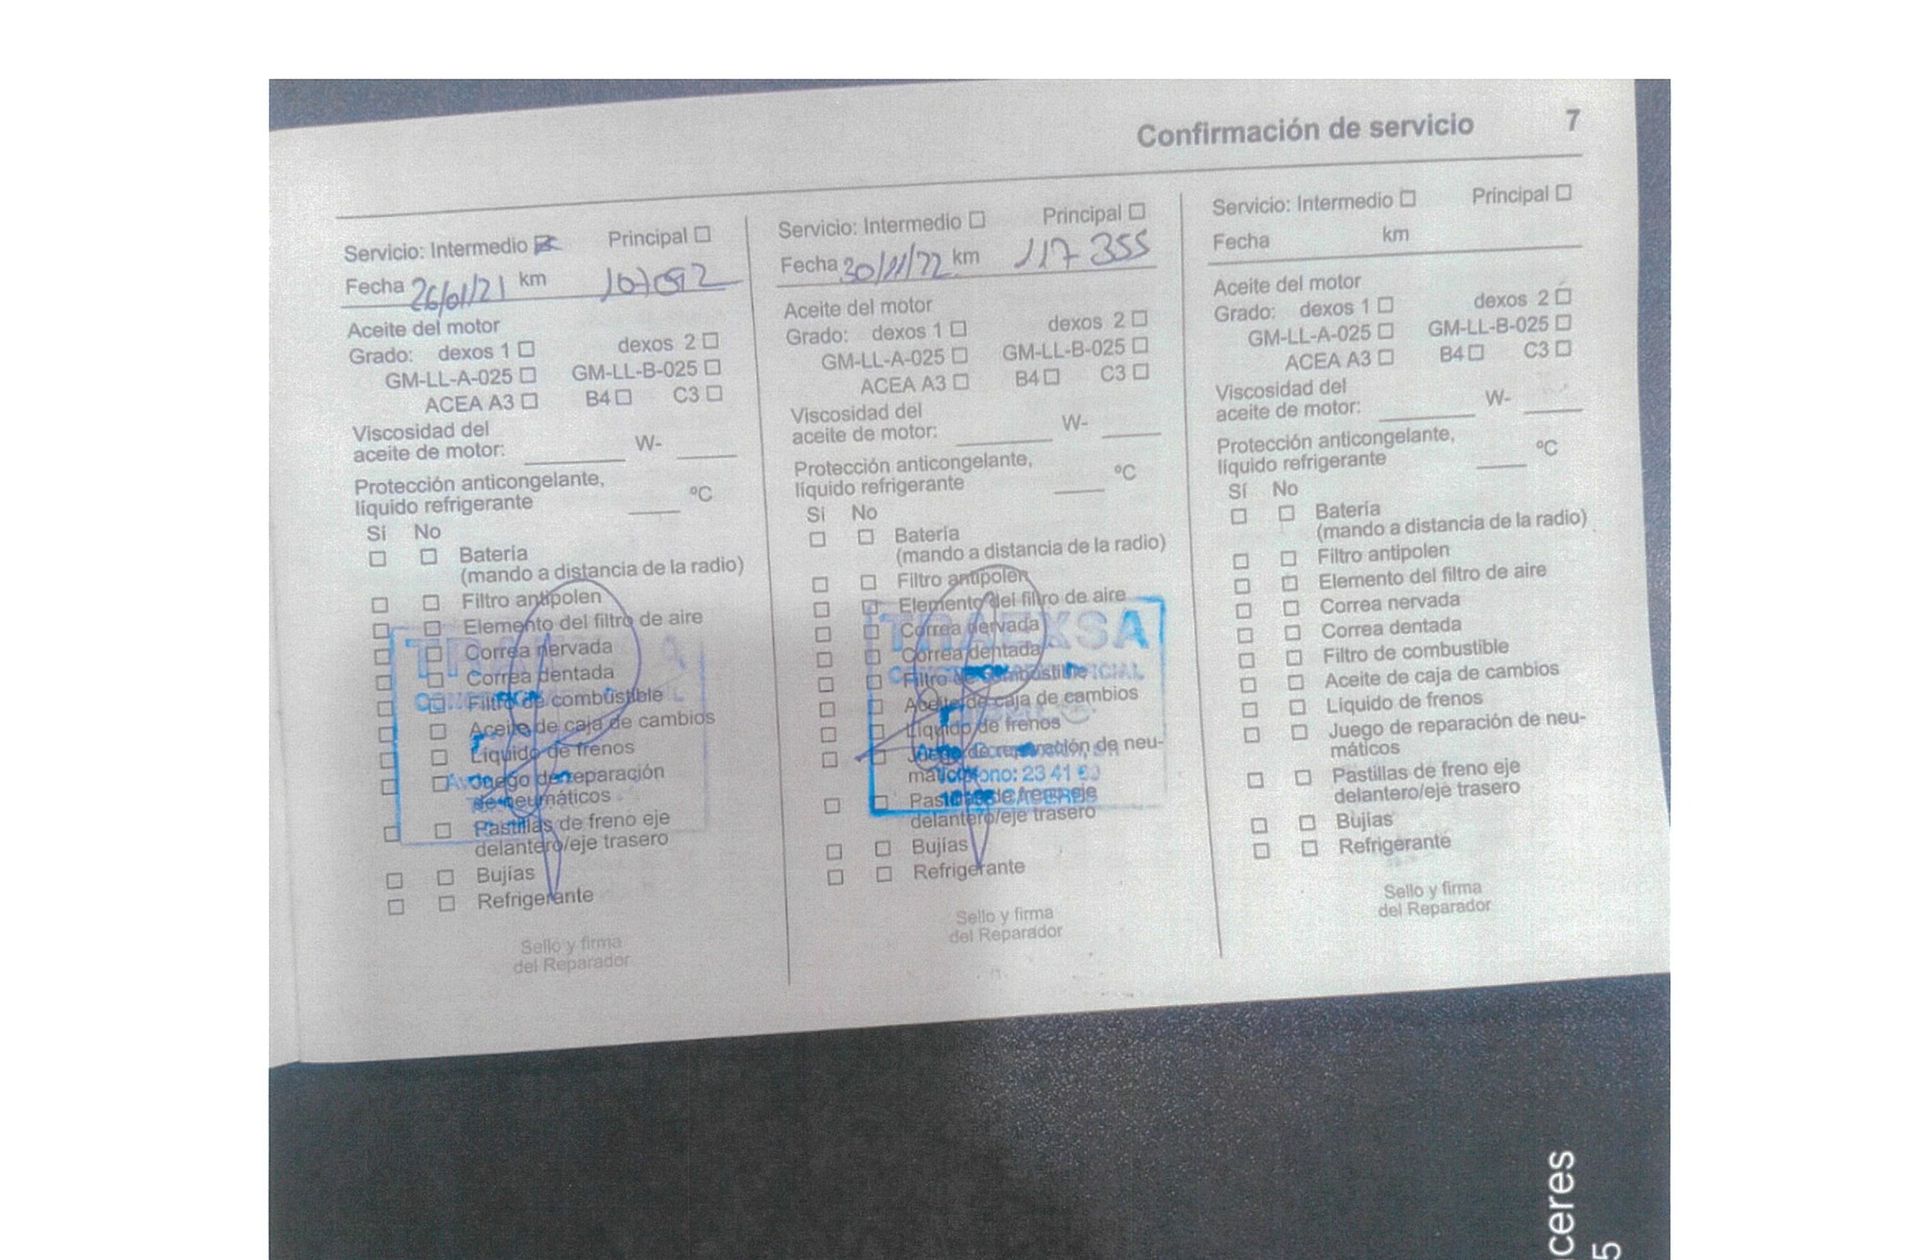 Confirmación de servicio 7
Servicio: Intermedio Principal
Fecha 26/01/21 km 107092
Aceite del motor
Grado: dexos 1 dexos 2
GM-LL-A-025 GM-LL-B-025
ACEA A3 B4 C3
Viscosidad del
aceite de motor: W-
Protección anticongelante,
líquido refrigerante ºC
Sí No
Batería
(mando a distancia de la radio)
Filtro antipolen
Elemento del filtro de aire
Correa nervada
Correa dentada
Filtro de combustible
Aceite de caja de cambios
Líquido de frenos
Juego de reparación
de neumáticos
Pastillas de freno eje
delantero/eje trasero
Bujías
Refrigerante
Sello y firma
del Reparador
Servicio: Intermedio Principal
Fecha 30/11/22 km 117355
Aceite del motor
Grado: dexos 1 dexos 2
GM-LL-A-025 GM-LL-B-025
ACEA A3 B4 C3
Viscosidad del
aceite de motor: W-
Protección anticongelante,
líquido refrigerante ºC
Sí No
Batería
(mando a distancia de la radio)
Filtro antipolen
Elemento del filtro de aire
Correa nervada
Correa dentada
Filtro de combustible
Aceite de caja de cambios
Líquido de frenos
Juego de reparación de neu-
máticos
Pastillas de freno eje
delantero/eje trasero
Bujías
Refrigerante
Sello y firma
del Reparador
Servicio: Intermedio Principal
Fecha km
Aceite del motor
Grado: dexos 1 dexos 2
GM-LL-A-025 GM-LL-B-025
ACEA A3 B4 C3
Viscosidad del
aceite de motor: W-
Protección anticongelante,
líquido refrigerante ºC
Sí No
Batería
(mando a distancia de la radio)
Filtro antipolen
Elemento del filtro de aire
Correa nervada
Correa dentada
Filtro de combustible
Aceite de caja de cambios
Líquido de frenos
Juego de reparación de neu-
máticos
Pastillas de freno eje
delantero/eje trasero
Bujías
Refrigerante
Sello y firma
del Reparador
ceres
5